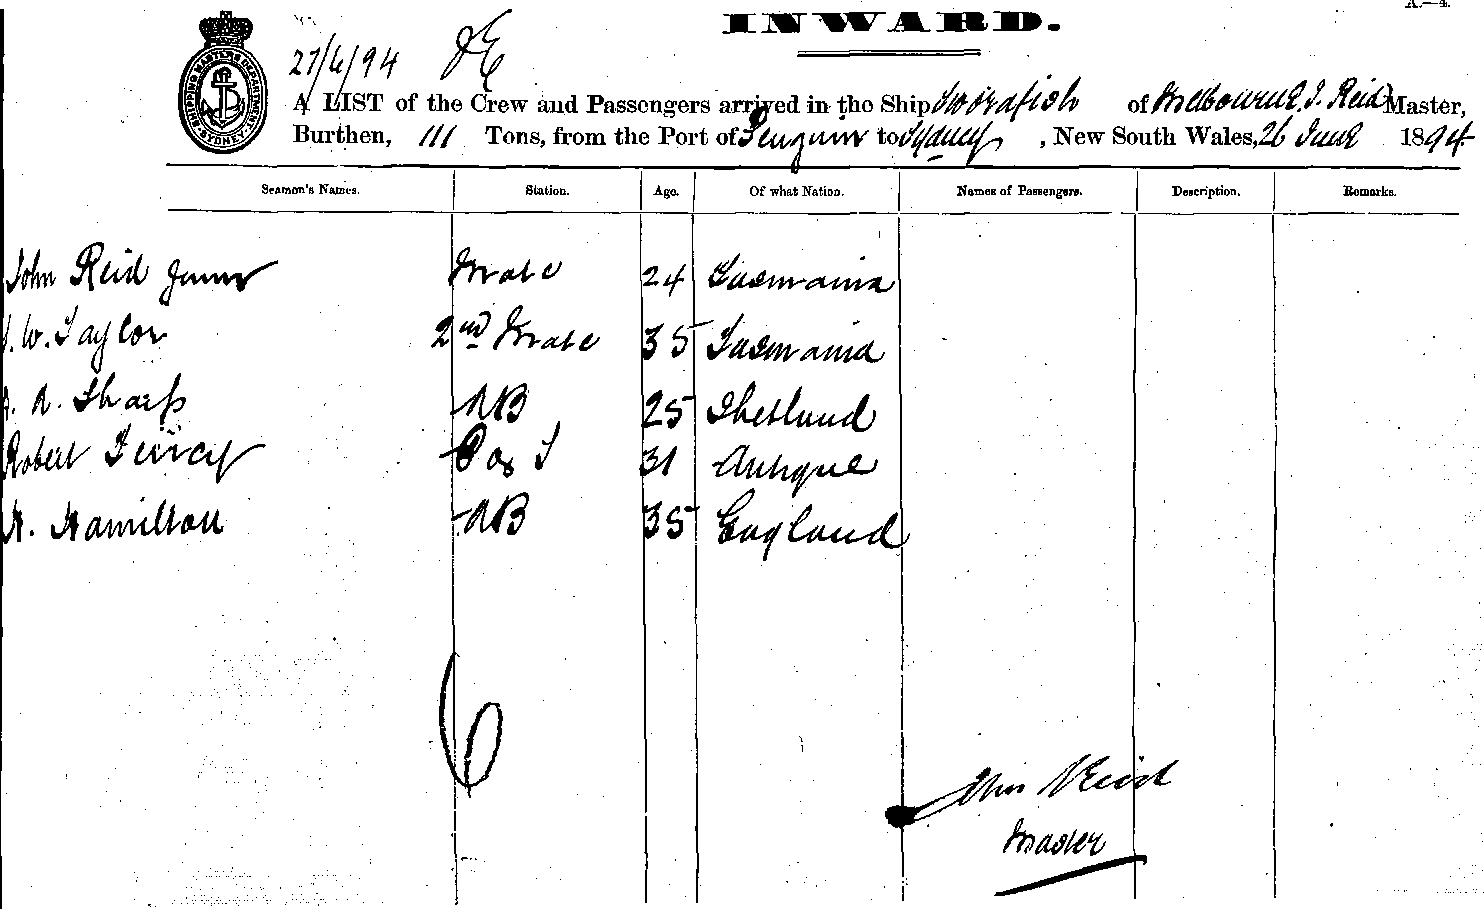 A.—4.
INWARD.
SHIPPING MASTERS DEPARTMENT SYDNEY
27/6/94 JE
A LIST of the Crew and Passengers arrived in the Ship Swordfish of Melbourne, J. Reid Master,
Burthen, 111 Tons, from the Port of Penguin to Sydney, New South Wales, 26 June 1894
Seamen's Names. Station. Age. Of what Nation. Names of Passengers. Description. Remarks.
John Reid Junior Mate 24 Tasmania
W. Taylor 2nd Mate 35 Tasmania
A. Sharp AB 25 Shetland
Robert AB 31 Antique
H. Hamilton AB 35 England
6
John Reid
Master